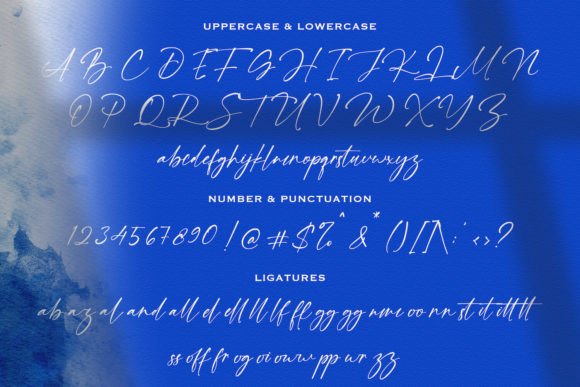 UPPERCASE & LOWERCASE
A B C D E F G H I J K L M N
O P Q R S T U V W X Y Z
abcdefghijklmnopqrstuvwxyz
NUMBER & PUNCTUATION
1234567890!@#$%^&*()[]\:'<>?
LIGATURES
ab az al and all el ell ll lf ff gg gg nm oo nn st it itt tt
ss off fr og oi ow w pp wr zz